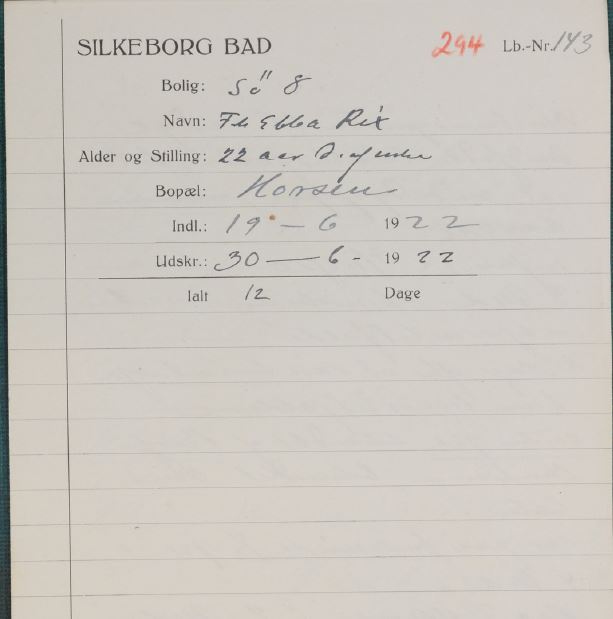 SILKEBORG BAD 294 Lb.-Nr. 143
Bolig: Sö 8
Navn: Frk Ebba Rix
Alder og Stilling: 22 aar D. af
Bopæl: Horsens
Indl.: 19 - 6 1922
Udskr.: 30 - 6 - 1922
Ialt 12 Dage